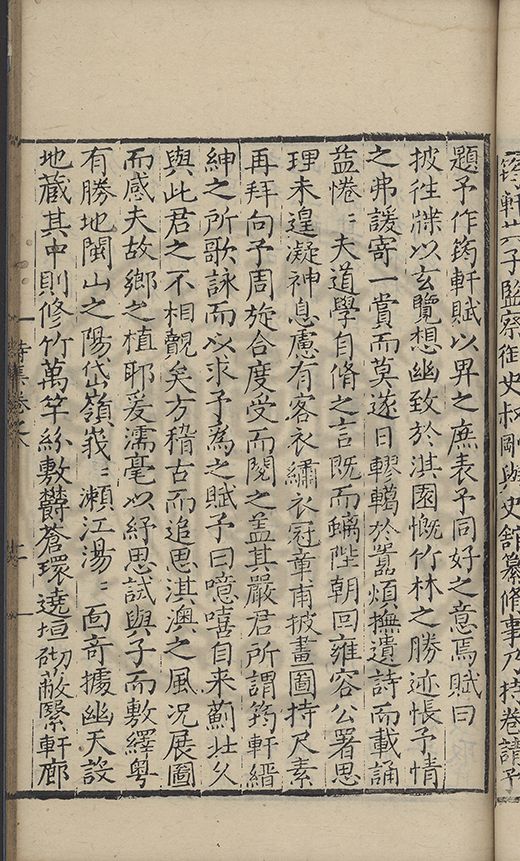 筠軒六子監察御史柯剛與史舘纂脩事乃持卷請予
題予作筠軒賦以畀之庶表予同好之意焉賦曰
披往牒以玄覽想幽致於淇園慨竹林之勝迹悵予情
之弗諼寄一賞而莫遂日轇轕於嚣煩撫遺詩而載誦
益惓〻夫道學自脩之言既而螭陛朝回雍容公署思
理未遑凝神息慮有客衣繡衣冠章甫披畫圖持尺素
再拜向予周旋合度受而閱之盖其嚴君所謂筠軒縉
紳之所歌詠而以求予為之賦予曰噫嘻自来薊北久
與此君之不相覿矣方稽古而追思淇澳之風况展圖
而感夫故鄉之植耶爰濡毫以紓思試與子而敷繹粤
有勝地閩山之陽岱嶺峩〻瀨江湯〻面奇據幽天設
地藏其中則修竹萬竿紛敷欝蒼環遶垣砌蔽翳軒廊
詩集卷之